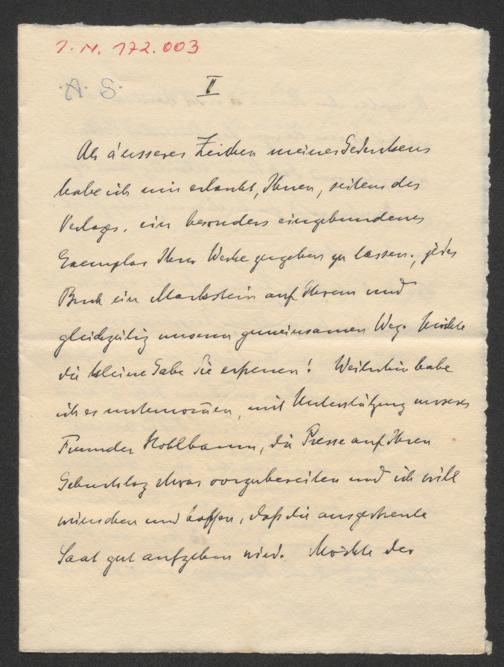 I.N. 172.003
A. S.
II
Als äusseres Zeichen meines Gedenkens
habe ich mir erlaubt, Ihnen, seitens des
Verlages, ein besonders eingebundenes
Exemplar Ihrer Werke zugehen zu lassen; jedes
Buch ein Markstein auf Ihrem und
gleichzeitig unserem gemeinsamen Weg. Möchte
die kleine Gabe Sie erfreuen! Weiterhin habe
ich es unternommen, mit Unterstützung unseres
Freundes Hohlbaum, die Presse auf Ihren
Geburtstag etwas vorzubereiten und ich will
wünschen und hoffen, daß die ausgestreute
Saat gut aufgehen wird. Möchte der